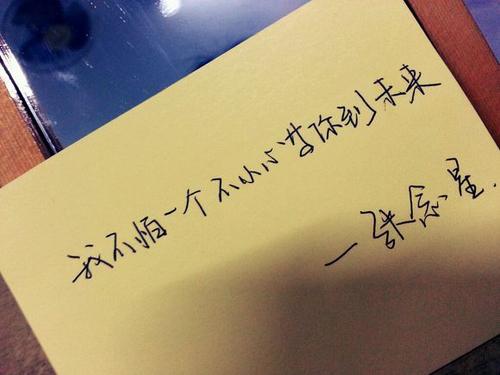 我不怕一个不小心带你到未来
一张念星.